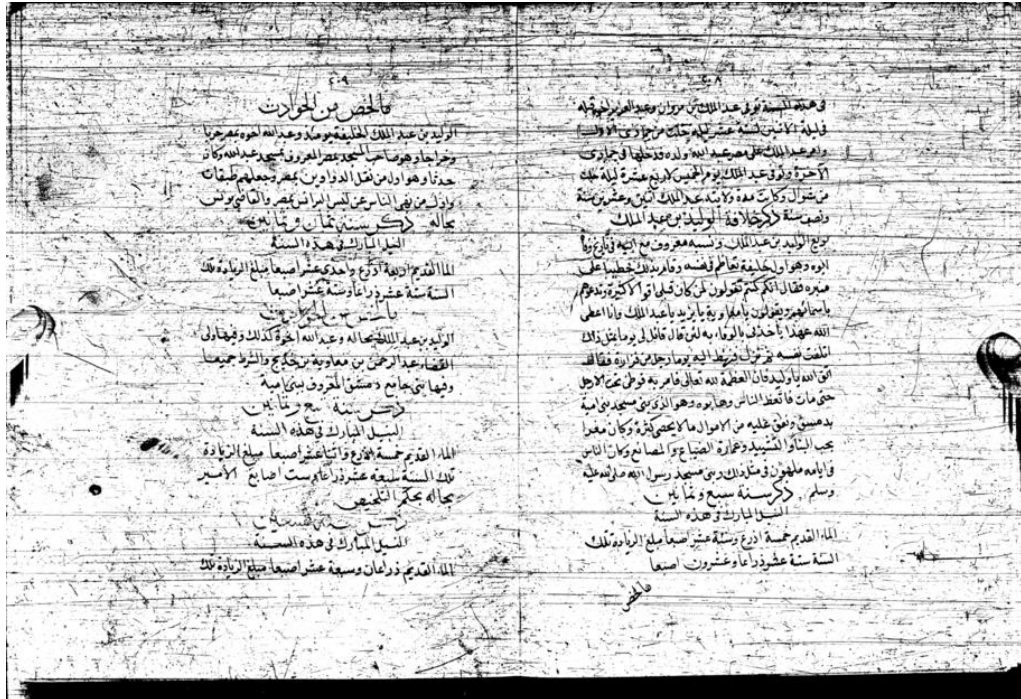 ٢٠٨
فى هذه السنة توفى عبد الملك بن مروان وعبد العزيز اخوه قبله
فى ليلة الاثنين لستة عشر ليلة خلت من جمادى الاولى
وامر عبد الملك على مصر عبد الله ولده فدخلها فى جمادى
الآخرة وتوفى عبد الملك يوم الخميس لاربع عشرة ليلة خلت
من شوال وكانت مدة ولايته عبد الملك اثنين وعشرين سنة
ونصف سنة ذكر خلافة الوليد بن عبد الملك
بويع الوليد بن عبد الملك ونسبه معروف مع ابيه فى تاريخ وفاة
ابوه وهو اول خليفة تعاظم فى نفسه وقام بذلك خطيبا على
منبره فقال انكم كنتم تقولون لمن كان قبلى اتوا الاكثيرة وتدعوهم
باسمائهم وتقولون يا معاوية يا يزيد يا عبد الملك وانا اعطى
الله عهدا ياخذنى بالوفاء به لئن قال قائل لى يوما مثل ذلك
اتلفت نفسه ثم نزل اليه يوما رجل من فزارة فقال
اتق الله يا وليد فان العظمة لله تعالى فامر به فوطئ تحت الارجل
حتى مات فاتعظ الناس وهابوه وهو الذى بنى مسجد بنى امية
بدمشق وانفق عليه من الاموال ما لا يحصى كثرة وكان مغرا
بحب البناء والتشييد وعمارة الضياع والمصانع وكان الناس
فى ايامه ملهون فى مثل ذلك وبنى مسجد رسول الله صلى الله عليه
وسلم ذكر سنة سبع وثمانين
النيل المبارك فى هذه السنة
الماء القديم خمسة اذرع وستة عشر اصبعا مبلغ الزيادة تلك
السنة ستة عشر ذراعا وعشرون اصبعا
مالخص
٢٠٩
مالخص من الحوادث
الوليد بن عبد الملك الخليفة يومئذ وعبد الله اخوه بمصر حربا
وخراجا وهو صاحب المسجد بمصر المعروف بمسجد عبد الله وكان
حدثا وهو اول من نقل الدواوين بمصر وجعلهم طبقات
واول من نهى الناس عن لبس البرانس بمصر والقاضى يونس
بحاله ذكر سنة ثمان وثمانين
النيل المبارك فى هذه السنة
الماء القديم اربعة اذرع واحدى عشر اصبعا مبلغ الزيادة تلك
السنة ستة عشر ذراعا وستة عشر اصبعا
مالخص من الحوادث
الوليد بن عبد الملك بحاله وعبد الله اخوه كذلك وفيها ولى
القضاء عبد الرحمن بن معاوية بن خديج والشرط جميعا
وفيها بنى جامع دمشق المعروف ببنى امية
ذكر سنة تسع وثمانين
النيل المبارك فى هذه السنة
الماء القديم خمسة اذرع واثنا عشر اصبعا مبلغ الزيادة
تلك السنة سبعة عشر ذراعا وست اصابع الامير
بحاله بحكم التلخيص
ذكر سنة تسعين
النيل المبارك فى هذه السنة
الماء القديم ذراعان وسبعة عشر اصبعا مبلغ الزيادة تلك